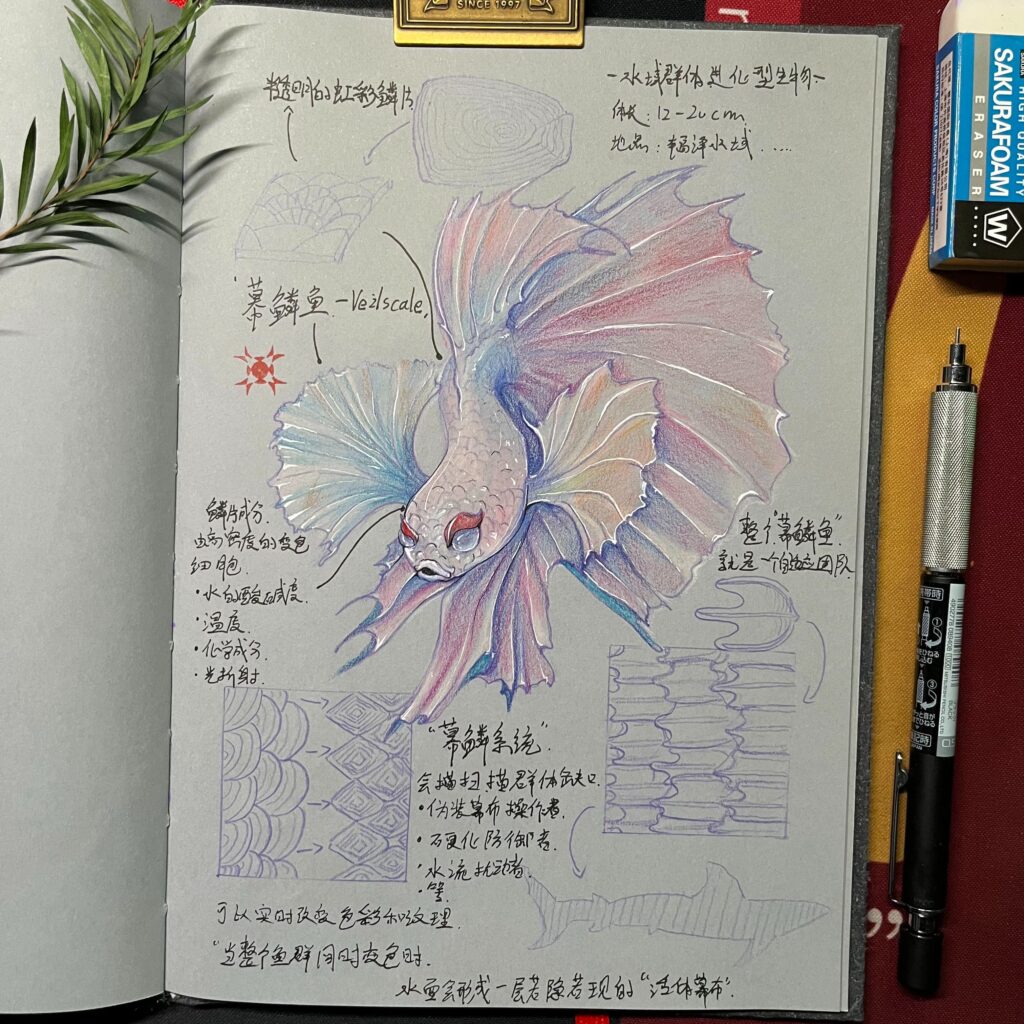 SINCE 1997
-水域群体进化型生物-
体长：12-20cm.
地点：幅泽水域.....
半透明的虹彩鳞片
"幕鳞鱼-Veilscale,
鳞片成分.
由高密度的变色
细胞.
·水的酸碱度.
·温度.
·化学成分.
·光折射.
整个"幕鳞鱼"
就是一个团队.
"幕鳞系统"
会扫描群体缺口.
·伪装幕布操作者.
·石更化防御者.
·水流扰动者.
·等.
可以实时改变色彩和纹理.
"当整个鱼群同时变色时.
水面会形成一层若隐若现的"活体幕布".
HIGH QUALITY
SAKURAFOAM
ERASER
W
SAKURA COLOR PRODUCTS CORP.
BLACK